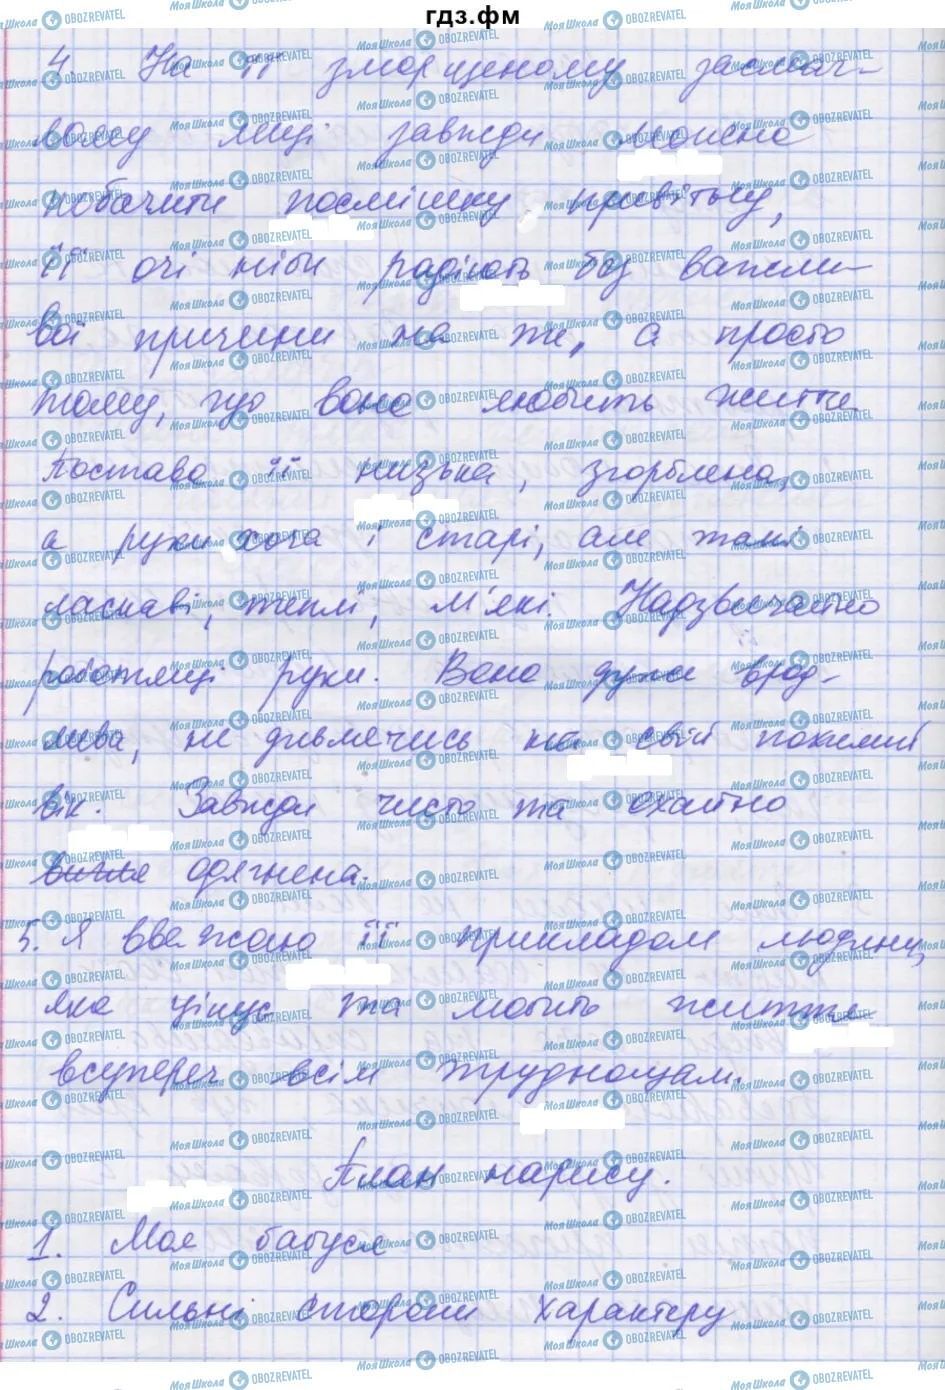 гдз.фм
4. На її зморщеному засмаг-
лому лиці завжди можна
побачити посмішку привітну,
її очі ніби радіють без важли-
вої причини на же, а просто
тому, що вона любить життя
Постава її низька, згорблена,
а руки хоча і старі, але такі
ласкаві, теплі, м'які. Надзвичайно
работящі руки. Вона дуже врод-
лива, не дивлячись на свій похилий
вік. Завжди чисто та охайно
одягнена.
5. Я вважаю її прикладом людини,
яка цінує та любить життя
всупереч всім труднощам.
План нарису.
1. Моя бабуся
2. Сильні сторони характеру